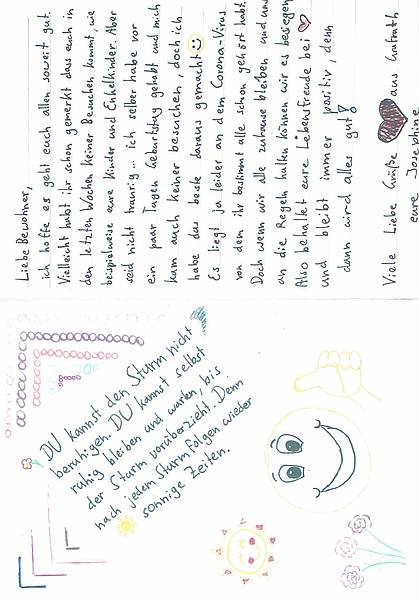 Liebe Bewohner,
ich hoffe es geht euch allen soweit gut.
Vielleicht habt ihr schon gemerkt dass euch in
den letzten Wochen keiner Besuchen kommt, wie
beispielweise eure Kinder und Enkelkinder. Aber
seid nicht traurig... ich selber habe vor
ein paar Tagen Geburtstag gehabt und mich
kam auch keiner besuchen, doch ich
habe das beste daraus gemacht
Es liegt ja leider an dem Corona-Virus
von dem ihr bestimmt alle schon gehört habt.
Doch wenn wir alle zuhause bleiben und uns
an die Regeln halten können wir es besiegen
Also behaltet eure Lebensfreude bei
und bleibt immer positiv, denn
dann wird alles gut!
Viele Liebe Grüße aus
eure Josephine
DU kannst den Sturm nicht
beruhigen. DU kannst selbst
ruhig bleiben und warten, bis
der Sturm vorüberzieht. Denn
nach jedem Sturm folgen wieder
sonnige Zeiten.